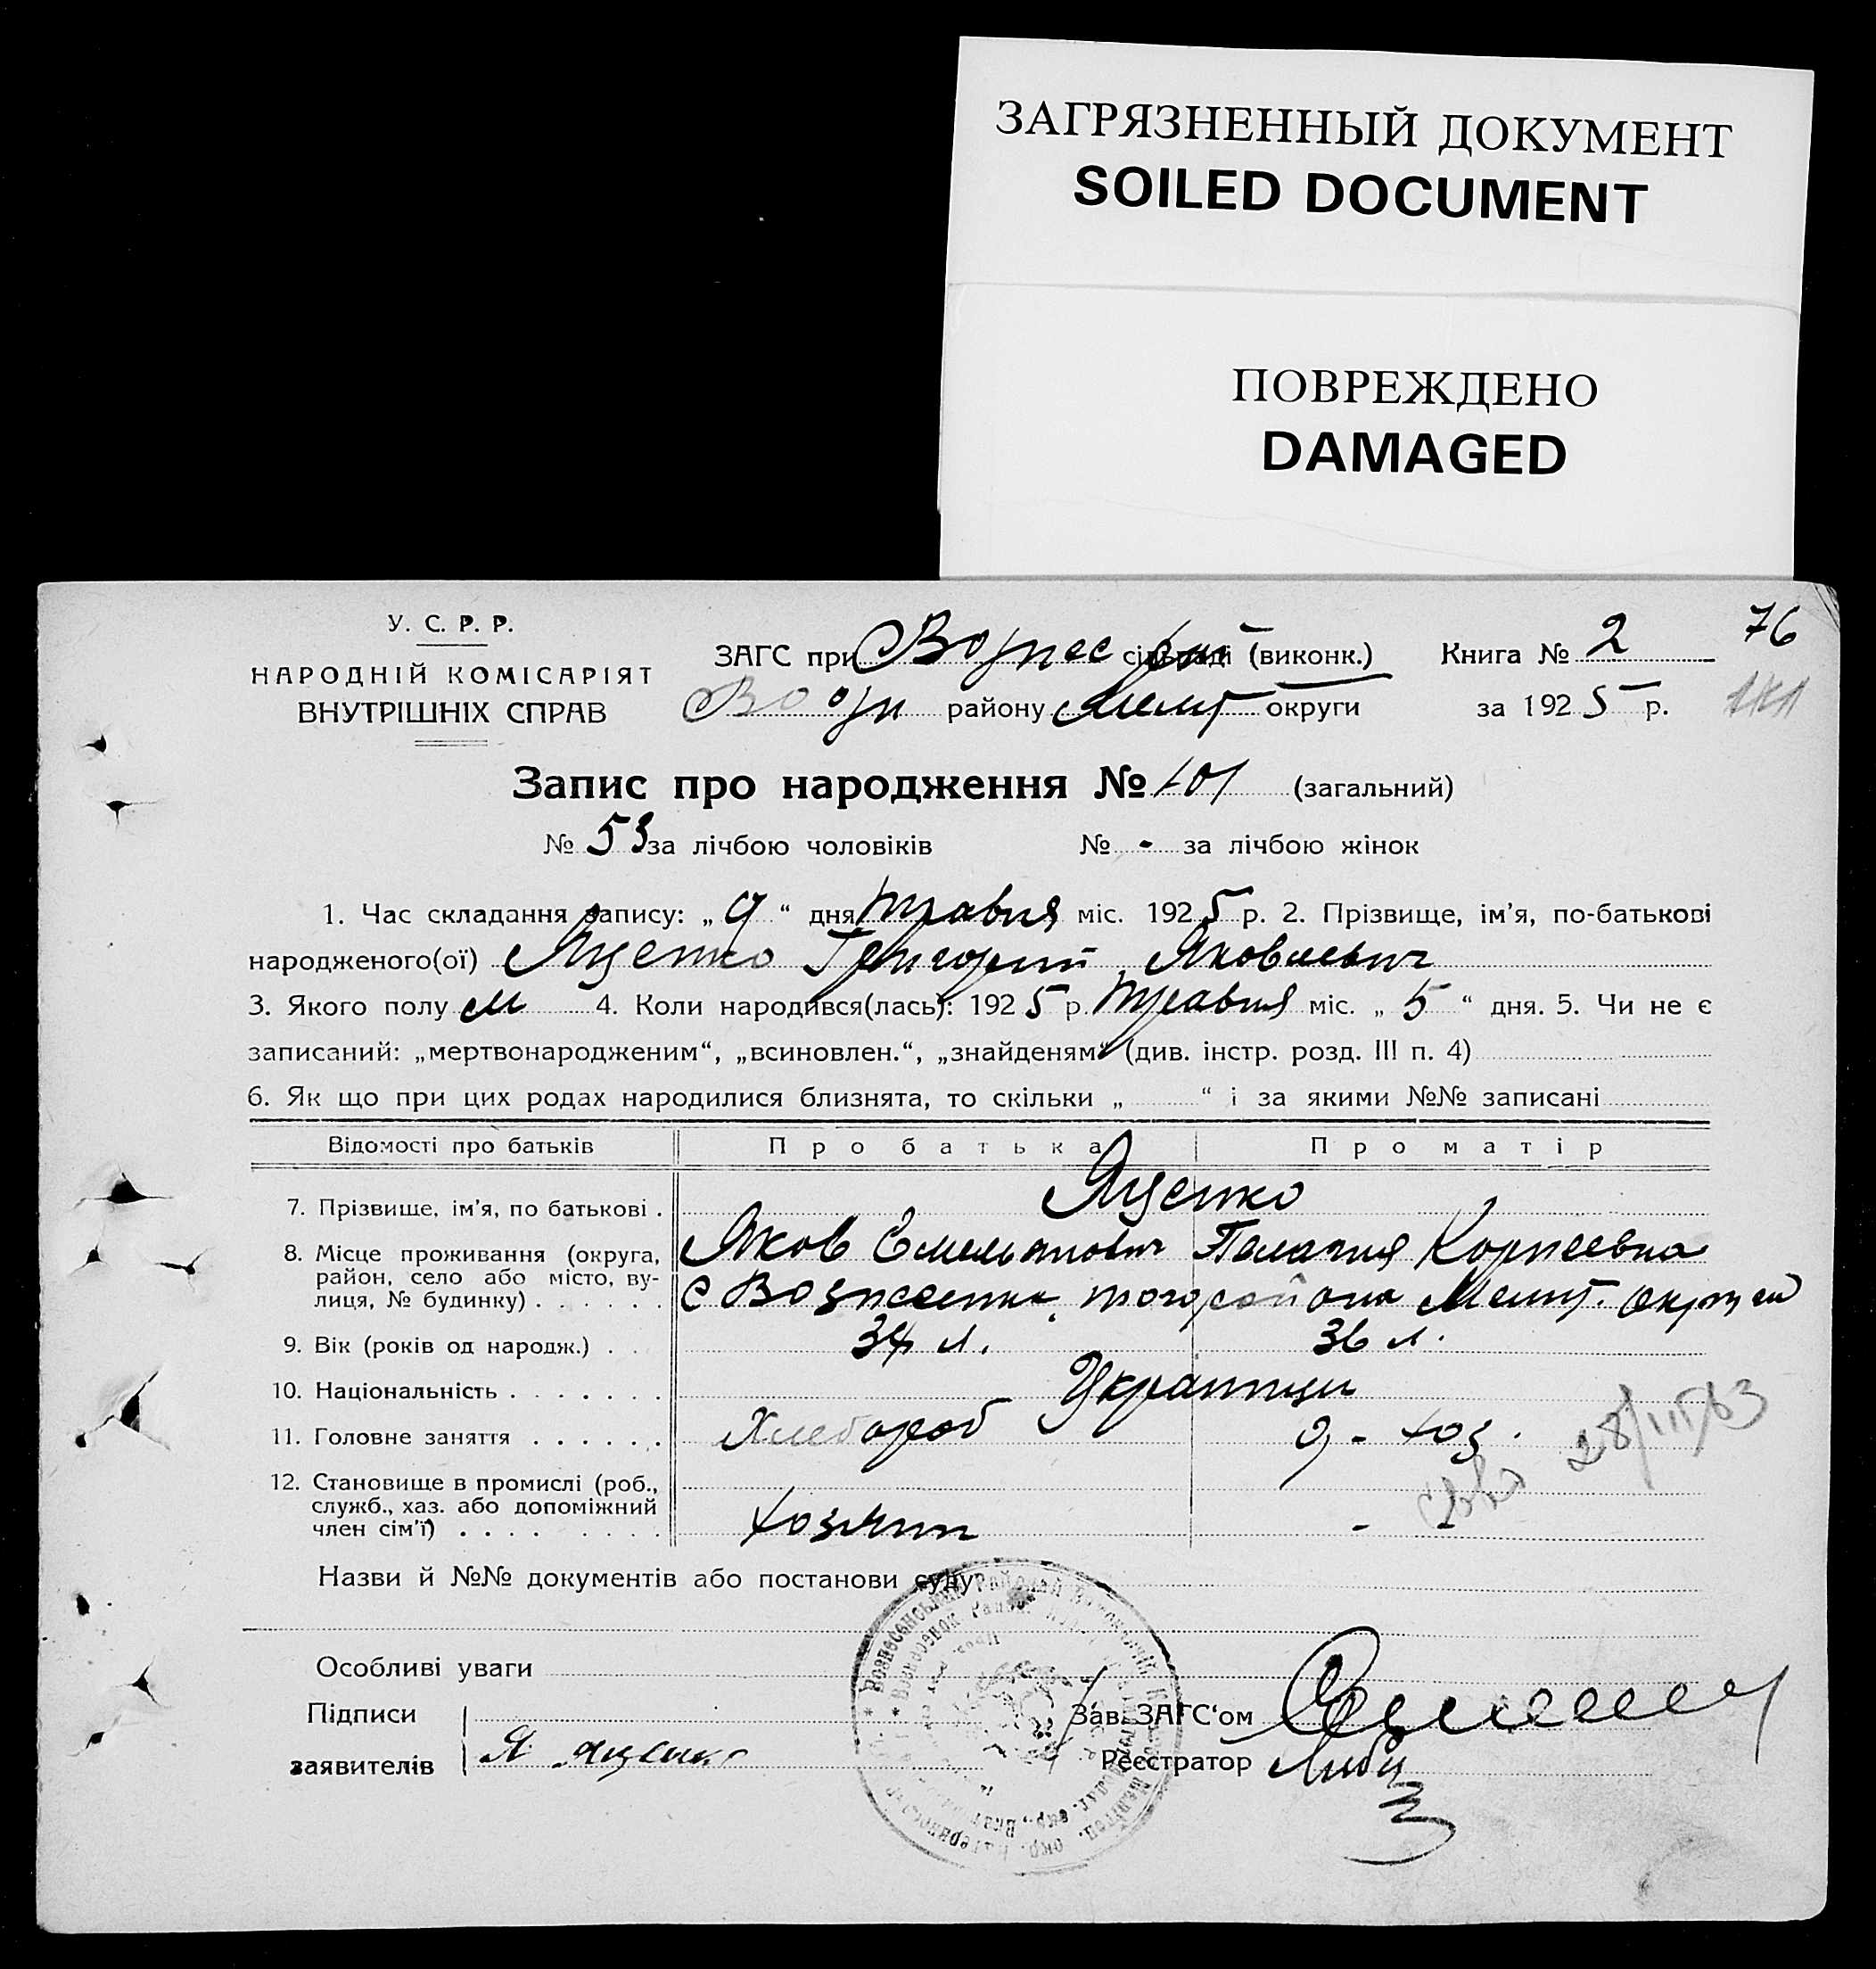 ЗАГРЯЗНЕННЫЙ ДОКУМЕНТ
SOILED DOCUMENT
ПОВРЕЖДЕНО
DAMAGED
76
У. С. Р. Р.
НАРОДНІЙ КОМІСАРІЯТ
ВНУТРІШНІХ СПРАВ
ЗАГС при сільраді (виконк.) Книга № 2
району Мелит округи за 1925 р.
Запис про народження № 101 (загальний)
№ 53 за лічбою чоловіків № - за лічбою жінок
1. Час складання запису: „9“ дня травня міс. 1925 р. 2. Прізвище, ім'я, по-батькові
народженого(ої) Яценко Григорий Яковлевич
3. Якого полу м 4. Коли народився(лась): 1925 р. травня міс. „5“ дня. 5. Чи не є
записаний: „мертвонародженим“, „всиновлен.“, „знайденям“ (див. інстр. розд. III п. 4)
6. Як що при цих родах народилися близнята, то скільки „ “ і за якими №№ записані
Відомості про батьків Про батька Про матір
7. Прізвище, ім'я, по батькові . Яценко
8. Місце проживання (округа, район, село або місто, вулиця, № будинку) . . . . . .
Яков Емельянович Пелагия Корнеевна
с Вознесенка, того района Мелит. округи
9. Вік (років од народж.) . . 34 л. 36 л.
10. Національність . . . . . . . Украинци
11. Головне заняття . . . . . . Хлебороб д-хоз.
28/III 63
12. Становище в промислі (роб., служб., хаз. або допоміжний член сім'ї) . . . . . . . . .
хозяин -
Назви й №№ документів або постанови суду
Особливі уваги
Підписи Зав. ЗАГС'ом
заявителів Я Яценко Реєстратор